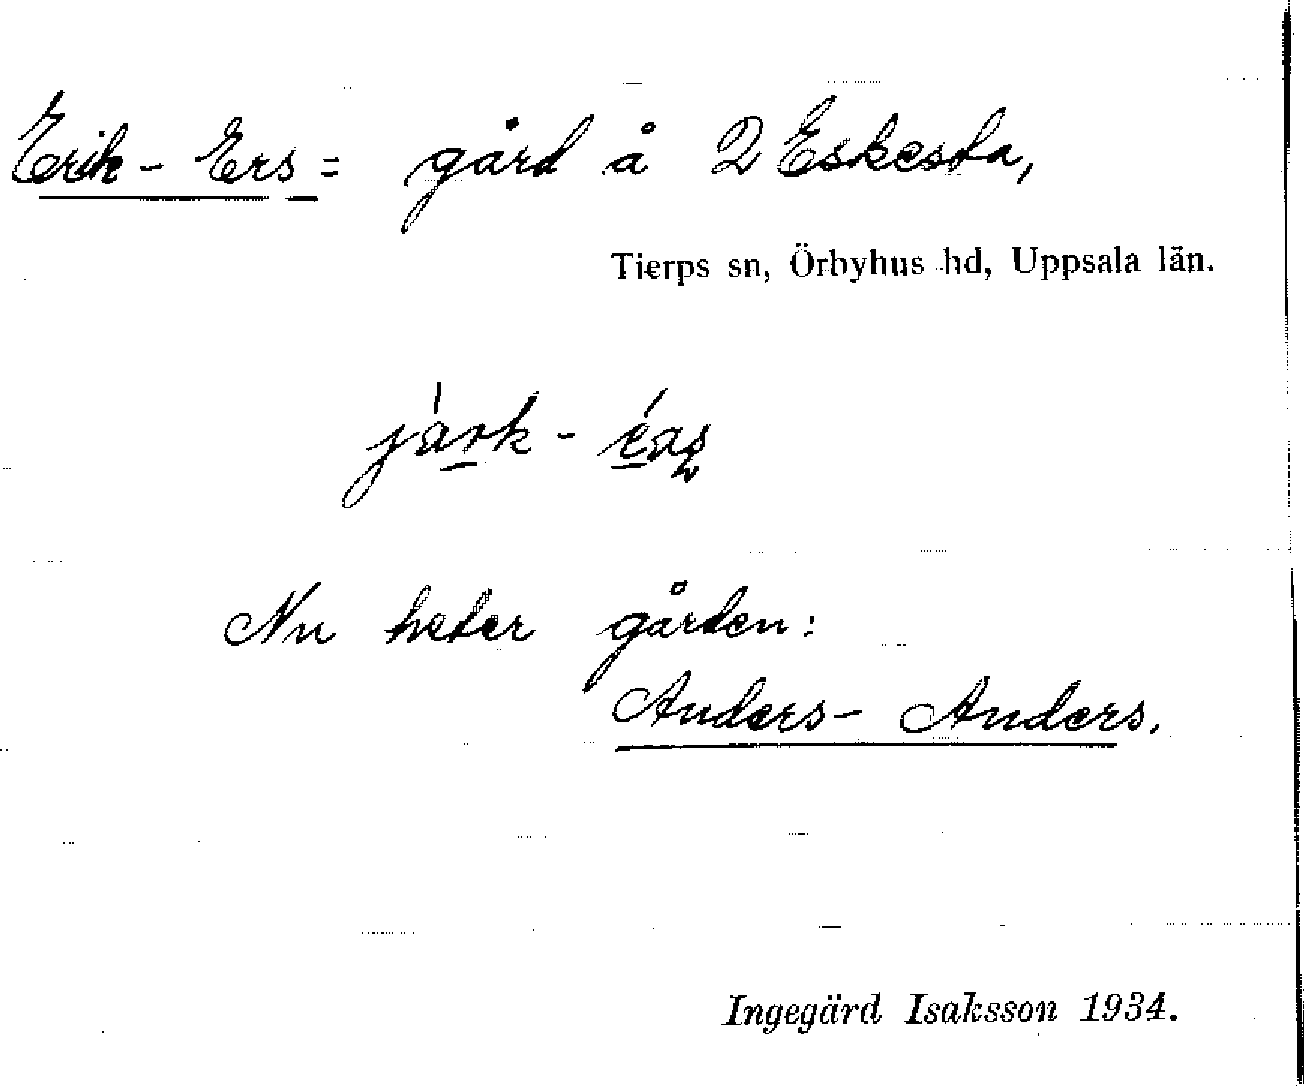 Erik-Ers= gård å 2 Eskesta,
Tierps sn, Örbyhus hd, Uppsala län.
Nu heter gården:
Anders-Anders.
Ingegärd Isaksson 1934.